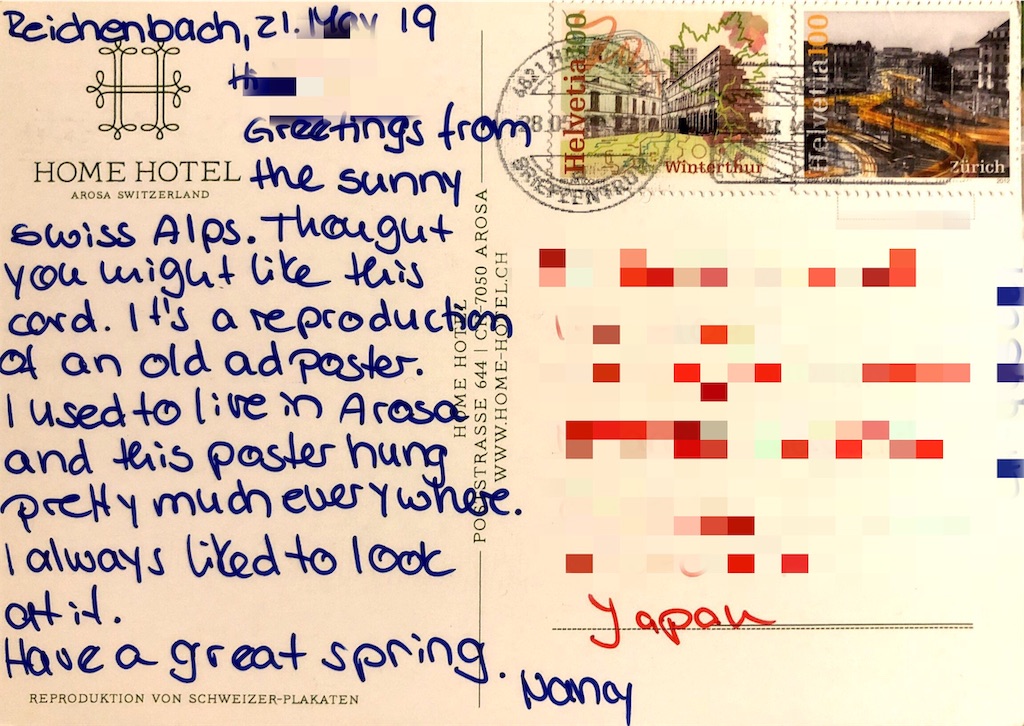 Reichenbach, 21. May 19
Hi
Greetings from
the sunny
swiss Alps. Thought
you might like this
card. It's a reproduction
of an old ad poster.
I used to live in Arosa
and this poster hung
pretty much everywhere.
I always liked to look
at it.
Have a great spring.
Nancy
HOME HOTEL
AROSA SWITZERLAND
REPRODUKTION VON SCHWEIZER-PLAKATEN
HOME HOTEL
POSTSTRASSE 644 | CH-7050 AROSA
WWW.HOME-HOTEL.CH
Helvetia 100
Winterthur
Helvetia 100
Zürich
Japan